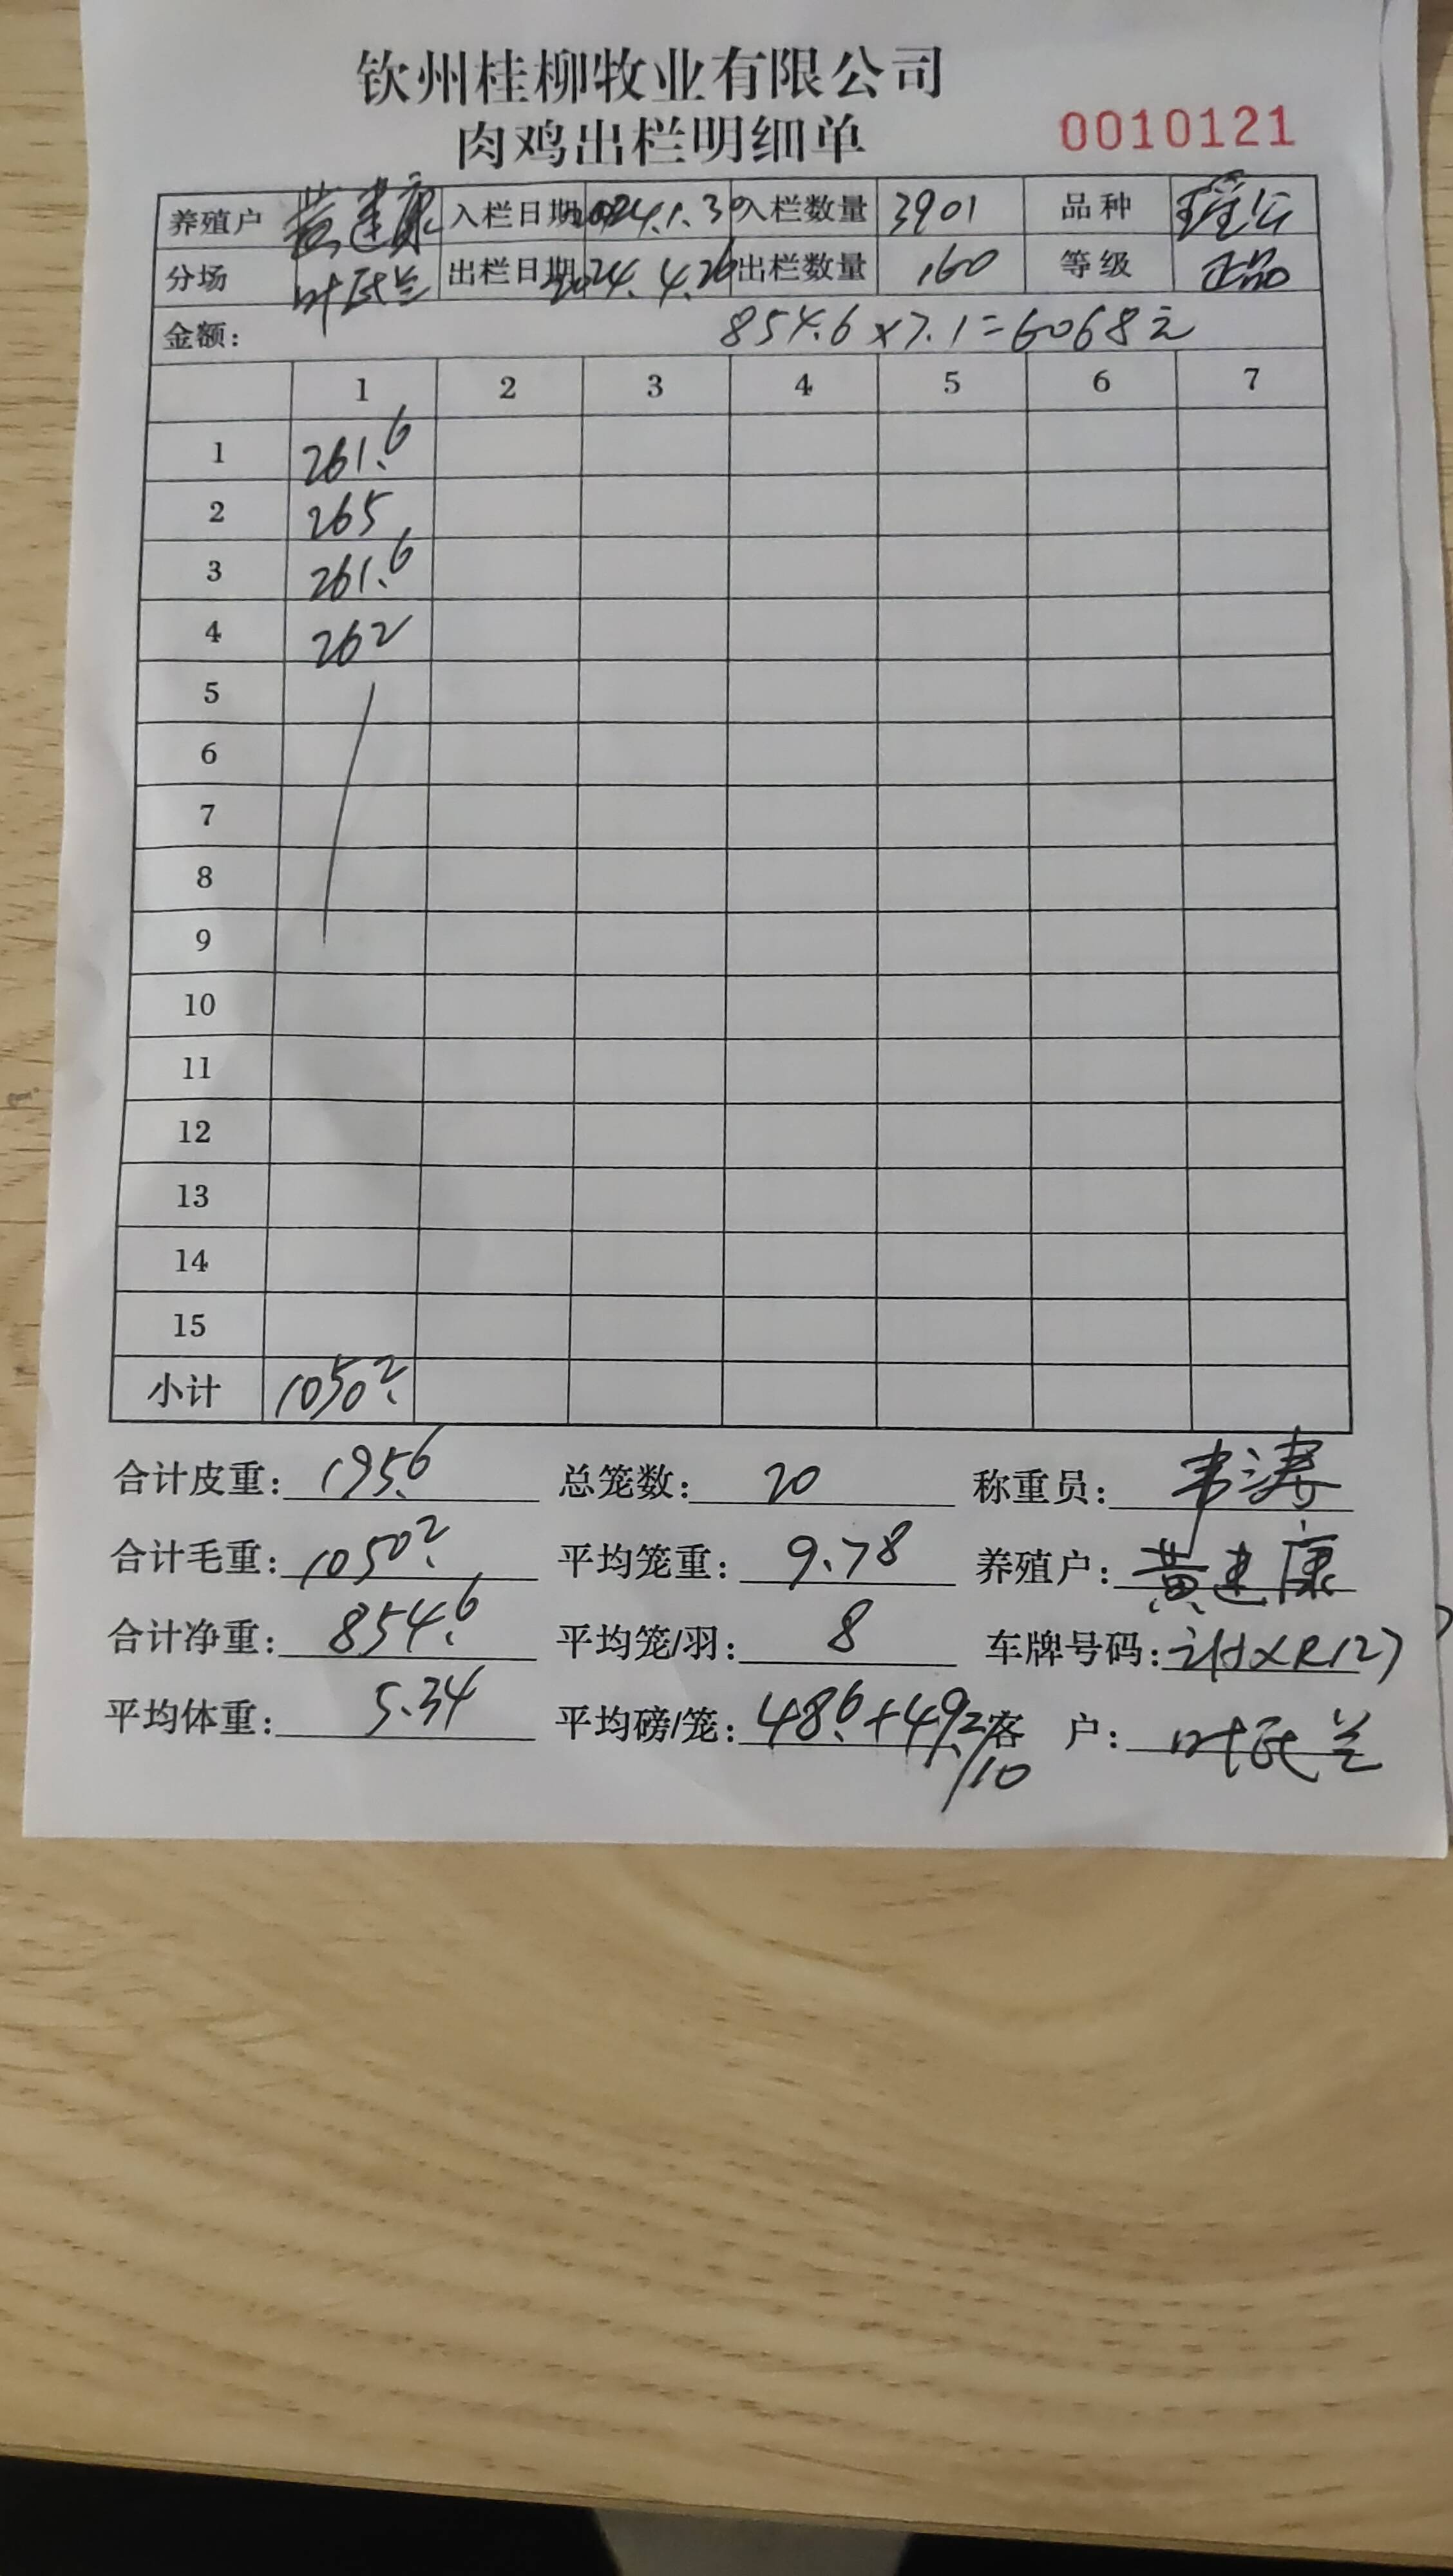 钦州桂柳牧业有限公司
肉鸡出栏明细单 0010121
养殖户 黄建康 入栏日期 2024.1.30 入栏数量 3901 品种
分场 叶民兰 出栏日期 2024.4.26 出栏数量 160 等级 正品
金额: 854.6×7.1=6068元
1 2 3 4 5 6 7
1 261.6
2 265
3 261.6
4 262
5
6
7
8
9
10
11
12
13
14
15
小计 1050.2
合计皮重: 195.6 总笼数: 20 称重员: 韦涛
合计毛重: 1050.2 平均笼重: 9.78 养殖户: 黄建康
合计净重: 854.6 平均笼/羽: 8 车牌号码:
平均体重: 5.34 平均磅/笼: 48.6+49.2/10 客 户: 叶民兰